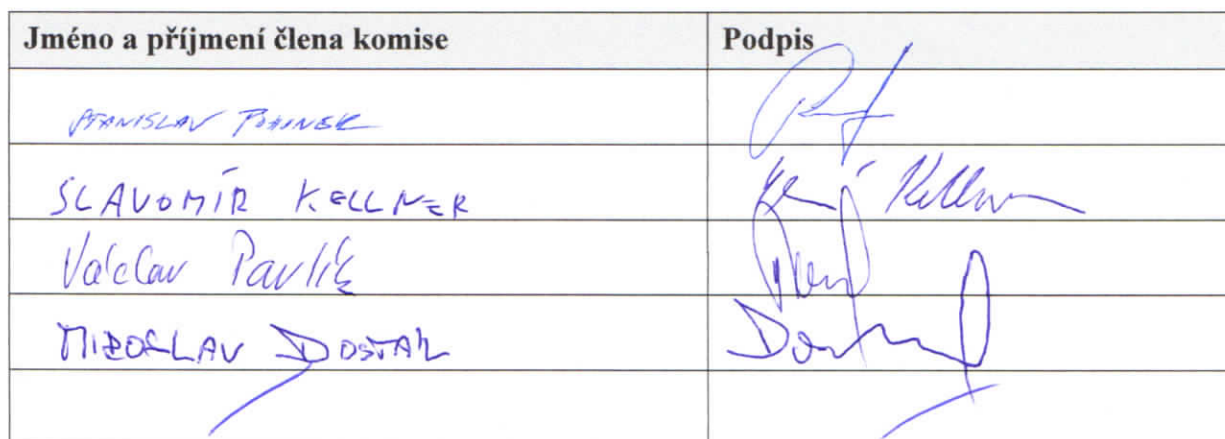 Jméno a příjmení člena komise Podpis
STANISLAV
SLAVOMÍR KELLNER Kellner
Václav Pavlík
MIROSLAV DOSTÁL